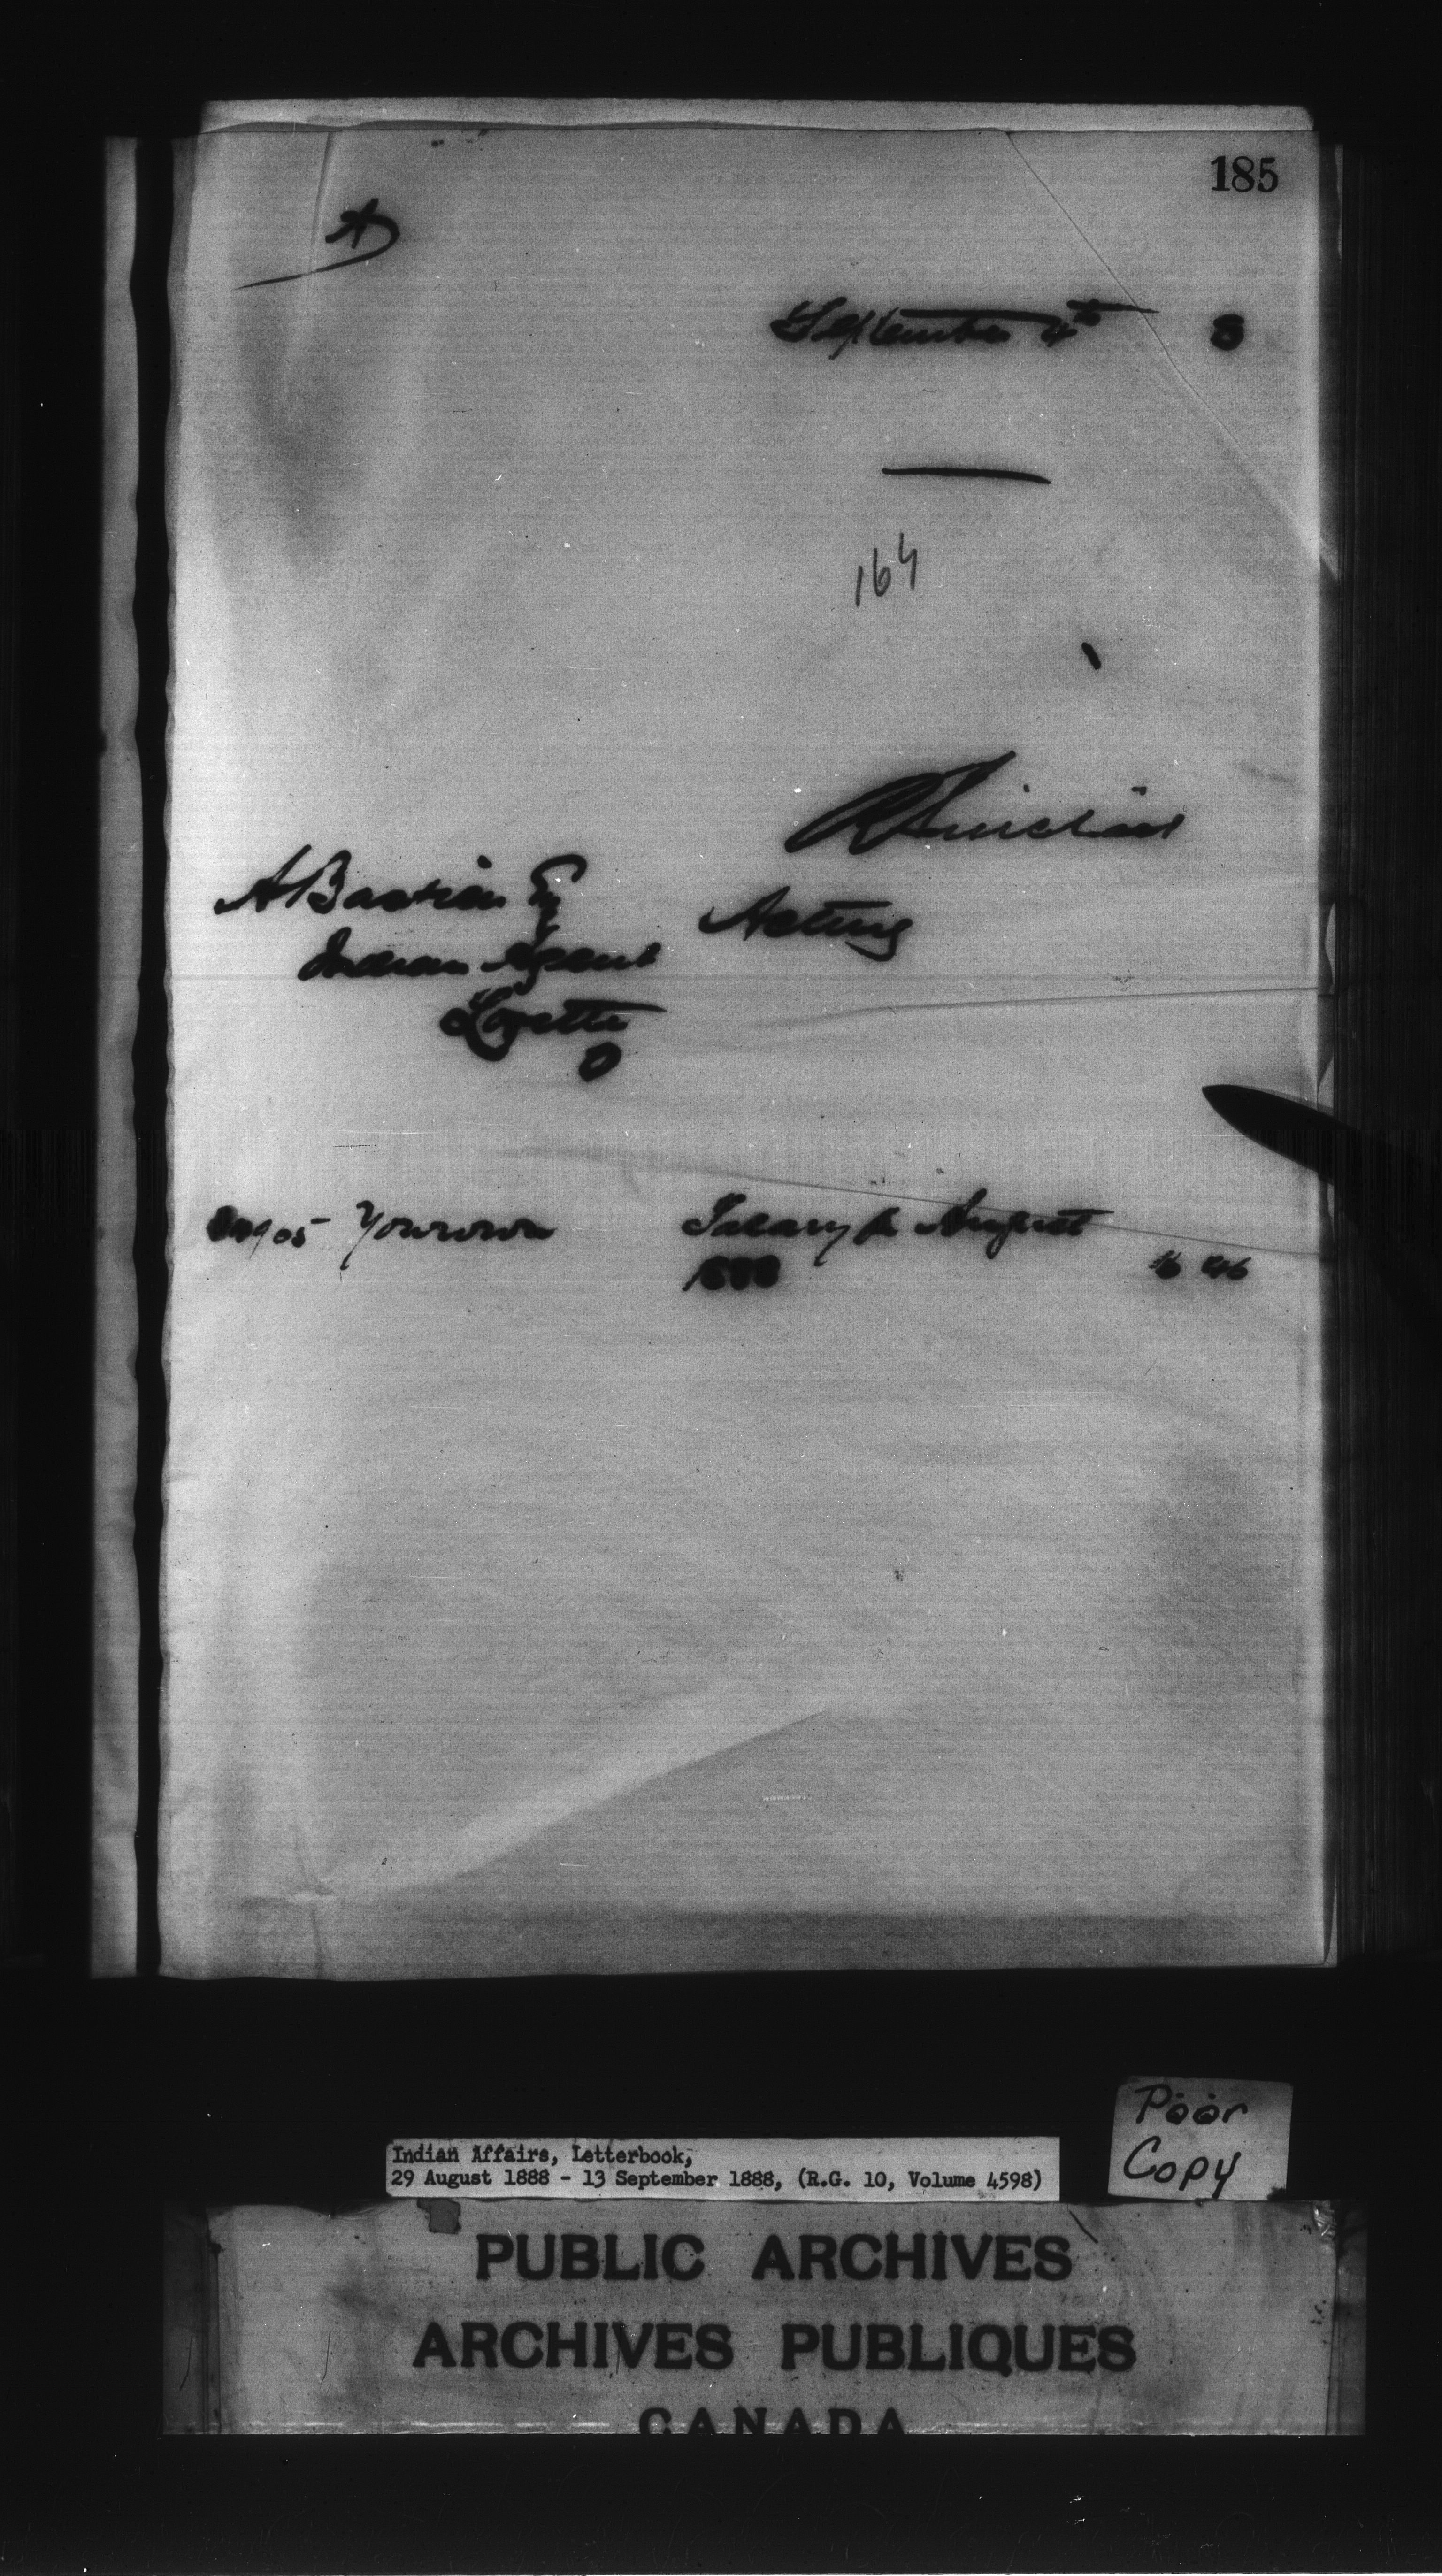 185
A
September 4th 8
164
R Sinclair
A Bastien Esq
Acting
Indian Agent
Lorette
Q
Yourown Salary for August
1888 46
Poor
Copy
Indian Affairs, Letterbook,
29 August 1888 - 13 September 1888, (R.G. 10, Volume 4598)
PUBLIC ARCHIVES
ARCHIVES PUBLIQUES
CANADA